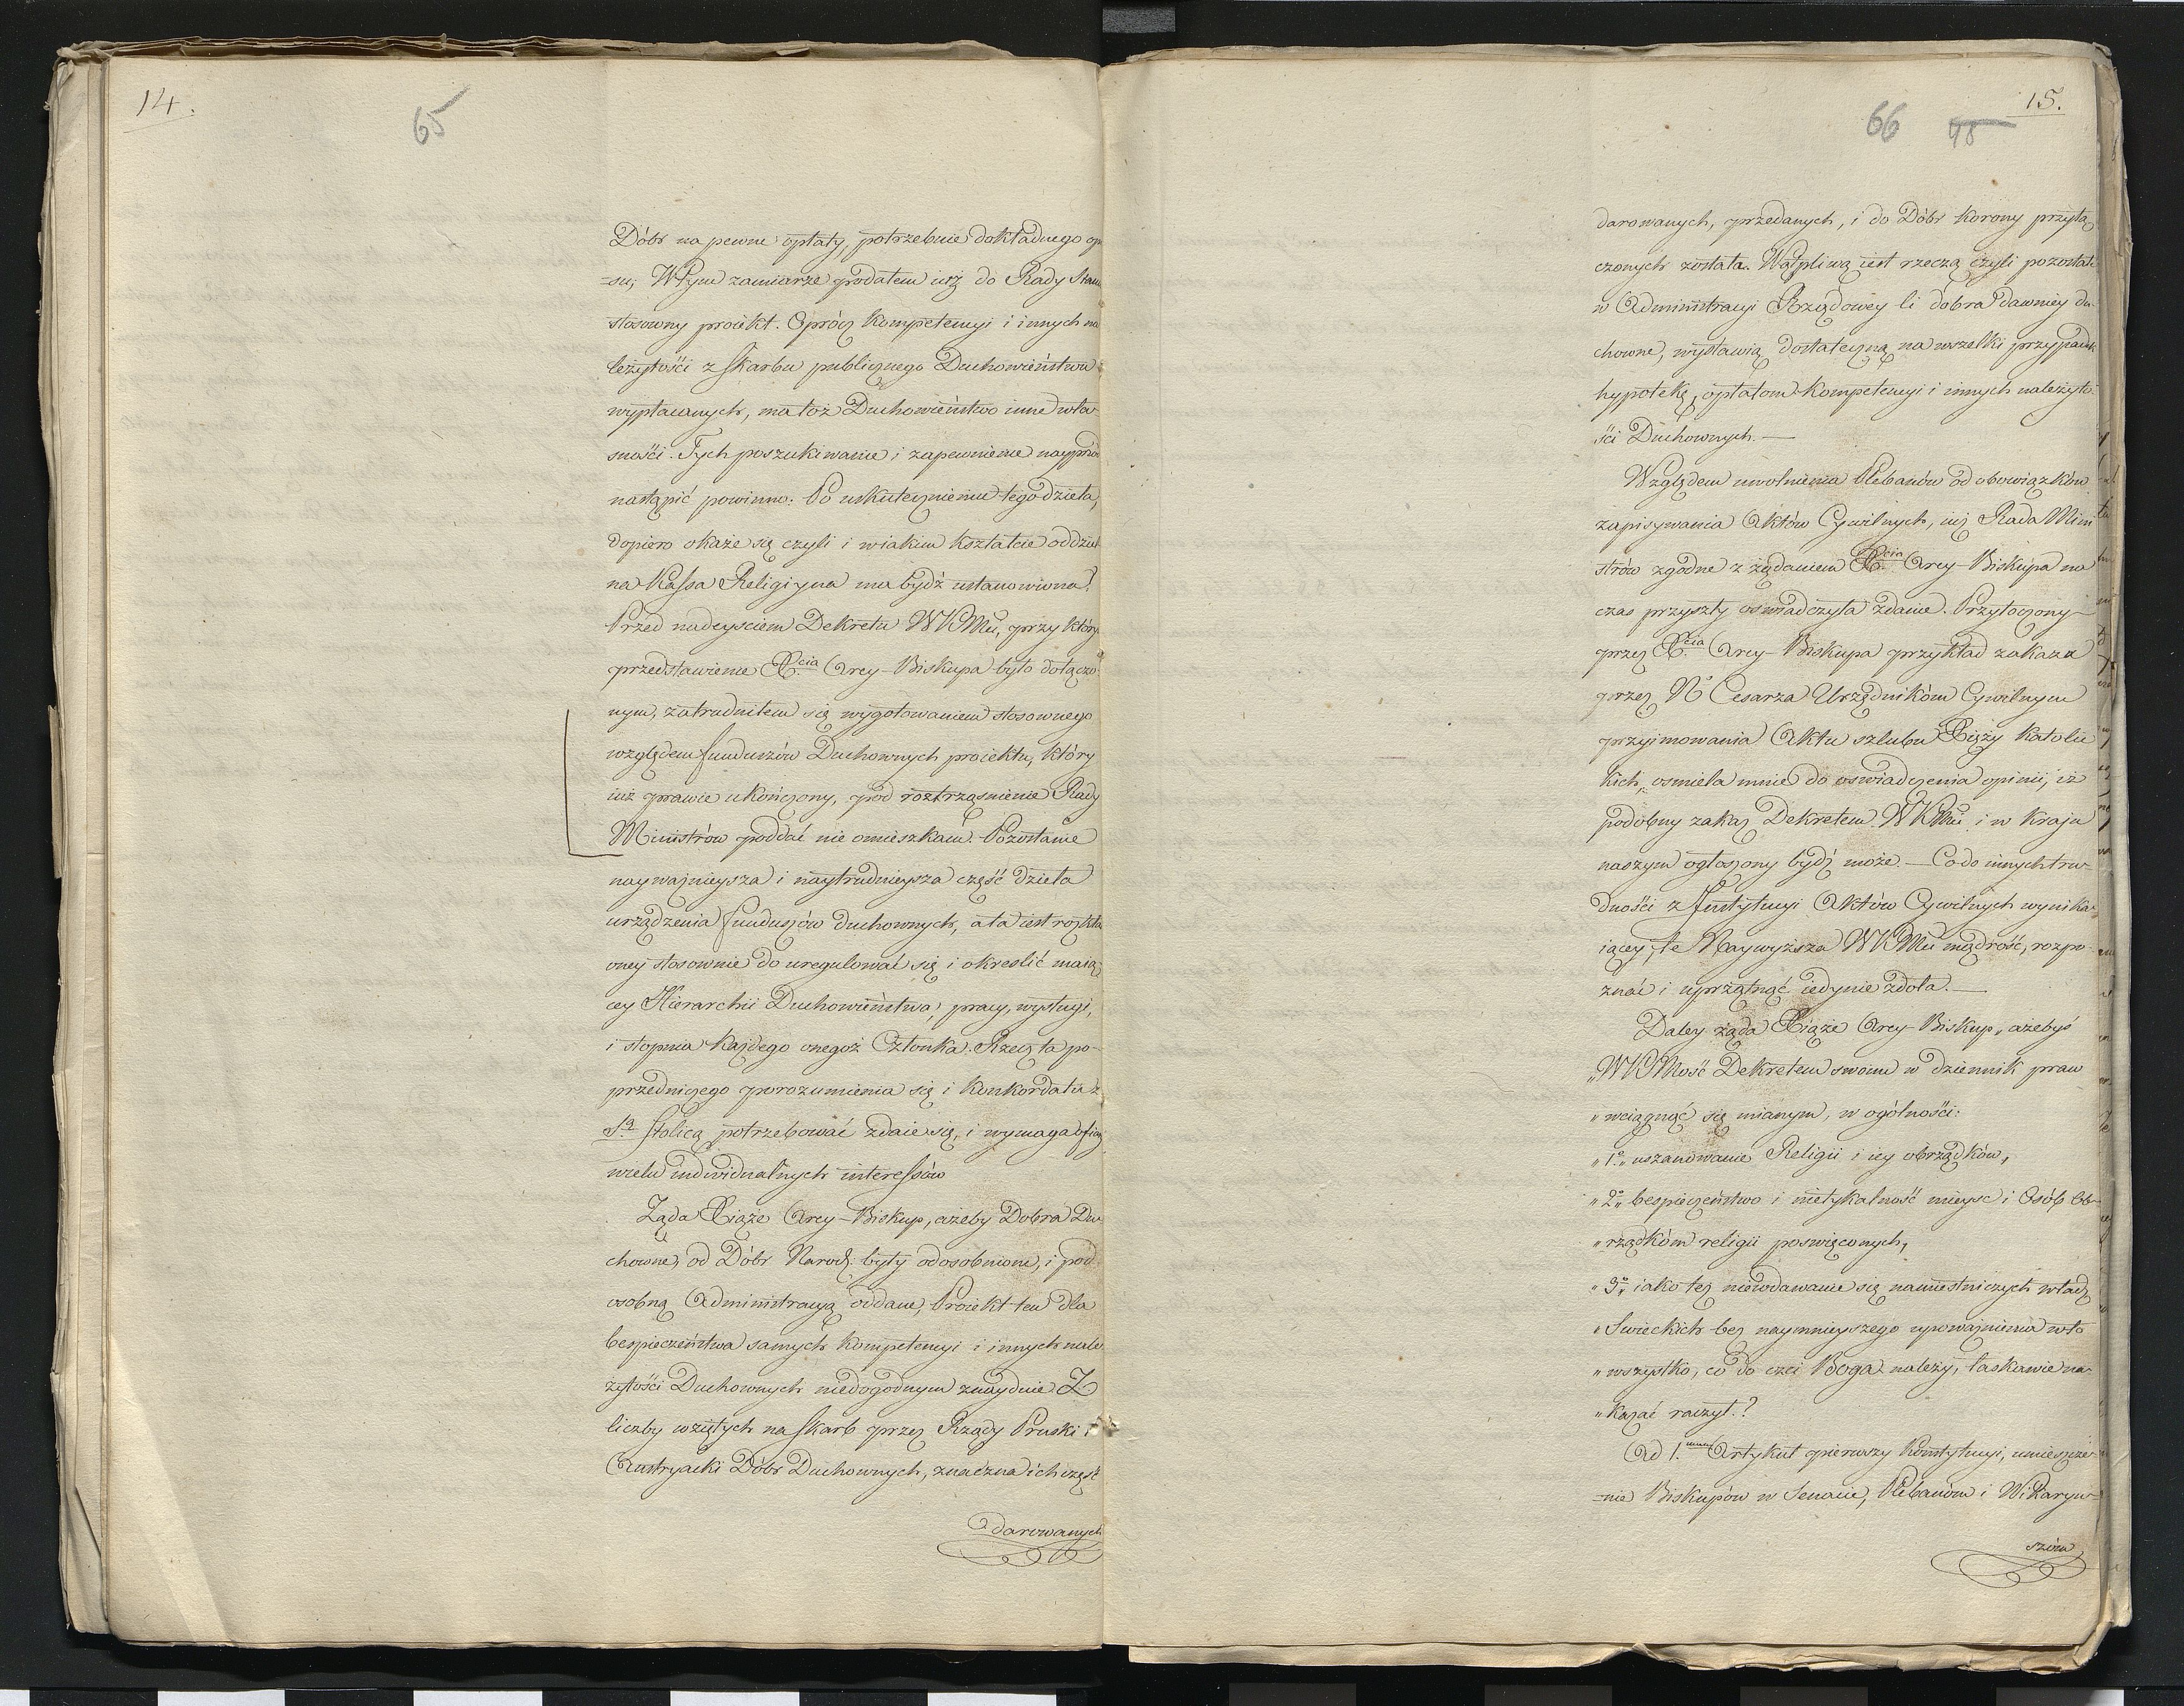 14.
65
Dóbr na pewne opłaty, potrzebuie dokładnego opi
=su; W tym zamiarze podałem iuż do Rady Stanu
stosowny proiekt. Oprócz Kompetencyi i innych na
leżytości z skarbu publicznego Duchowieństwu
wypłacanych, ma toż Duchowieństwo inne wła
sności. Tych poszukiwanie i zapewnienie nayprzód
nastąpić powinno. Po uskutecznieniu tego dzieła,
dopiero okaże się czyli i wiakim kształcie oddziel
na Kassa Religiyna ma bydź ustanowiona?
Przed nadeyściem Dekretu WKMci, przy który
przedstawienie X.cia Arcy-Biskupa było dołączo
nym, zatrudniłem się wygotowaniem stosownego
względem funduszów Duchownych proiektu, który
iuż prawie ukończony, pod roztrząśnienie Rady
Ministrów poddać nie omieszkam. Pozostanie
nayważnieysza i naytrudnieysza część dzieła
urządzenia funduszów duchownych, a ta iest rozkła
oney stosownie do uregulować się i okreslić maią
cey Hierarchii Duchowieństwa, pracy, wysługi,
i stopnia każdego onegoż Członka. Rzecz ta po-
przedniczego porozumienia się i Konkordatu z
S.tą Stolicą potrzebować zdaie się, i wymaga ofiar
wielu indwidualnych interessów
Żąda Xiąże Arcy-Biskup, ażeby Dobra Du
chowne, od Dóbr Narod: były odosobnione, i pod
osobną Administracyą oddane, Proiekt ten dla
bespieczeństwa samych kompetencyi i innych nale
żytości Duchownych niedogodnym znayduie. Z
liczby wziętych na skarb przez Rządy Pruski i
Austryacki Dóbr Duchownych, znaczna ich część
darowanych
15.
66 48
darowanych, przedanych, i do Dóbr Korony przyłą
czonych została. Wątpliwą iest rzeczą czyli pozostałe
w Administracyi Rządowey li dobra dawniey du-
chowne, wystawią dostateczną na wszelki przypadek
hypotekę, opłatom Kompetencyi i innych należyto-
ści Duchownych. —
Względem uwolnienia Plebanów od obowiązków
zapisywania Aktów Cywilnych, iuż Rada Mini
strów zgodne z żądaniem X.cia Arcy-Biskupa na
czas przyszły oswiadczyła zdanie. Przytoczony
przez X.cia Arcy-Biskupa przykład zakazu
przez N° Cesarza Urzędnikóm Cywilnym
przyjmowania Aktu szlubu Xięży Katolic
kich, osmiela mnie do oswiadczenia opinii, iż
podobny zakaz Dekretem WKMci i w kraju
naszym ogłoszony bydź może. — Co do innych tru-
dności z Instytucyi Aktów Cywilnych wynika-
iącey, te Naywyższa WKMci mądrość, rozpo-
znać i uprzątnąć iedynie zdoła. —
Daley żąda Xiąże Arcy-Biskup, ażebyś
„WKMość Dekretem swoim w dziennik praw
„wciągnąć się mianym, w ogólności:
„1.° uszanowanie Religii i iey obrządków,
„2.° bespieczeństwo i nietykalność mieysc i Osób Ob-
„rządkóm religii poswięconych,
„3.° iako też niewdawanie się namiestniczych władz
„Swieckich bez naymnieyszego upoważnienia w to
„wszystko, co do czci Boga należy, łaskawie na-
„kazać raczył.?
Ad 1.mum Artykuł pierwszy Konstytucyi, umieszcze-
=nie Biskupów w Senacie, Plebanóm i Wikaryu-
szóm